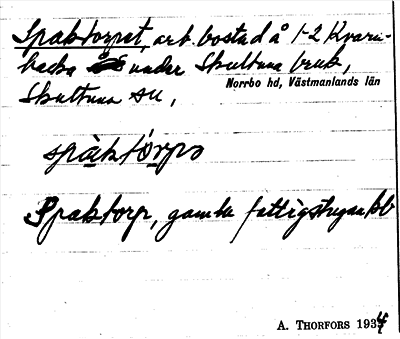 Spaktorpet, arb. bostad å 1-2 Kvarn-
backa under Skultuna bruk,
Norrbo hd, Västmanlands län
Skultuna sn,
spàktórpə
Spaktorp, gamla fattigstugan bb
A. THORFORS 1934